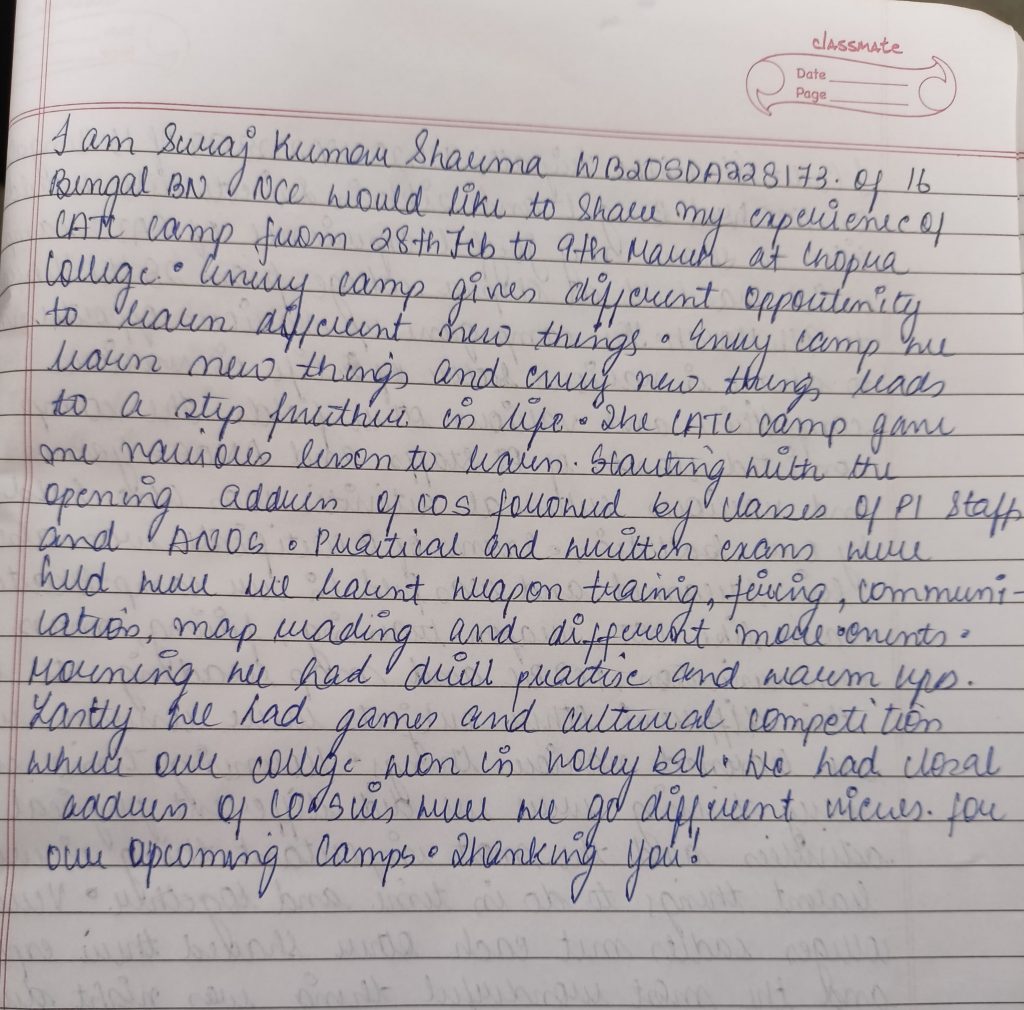 classmate
Date
Page
I am Suraj Kumar Sharma WB20SDA228173. Of 16
Bengal BN NCC would like to share my experience of
CATC camp from 28th Feb to 9th March at Chopra
College. Every camp gives different oppoutenity
to learn different new things. Every camp we
learn new things and every new things leads
to a step further in life. The CATC camp gave
me various lesson to learn. Starting with the
opening address of COS followed by classes of PI Staff
and ANOS. Practical and written exams were
held were we learnt weapon traing, fering, communi-
cation, map reading and different mode
Morning we had drill practise and warm ups.
Lastly we had games and cultural competition
where our college won in volley ball. We had closal
address of were we go different views. for
our upcoming Camps. Thanking you!